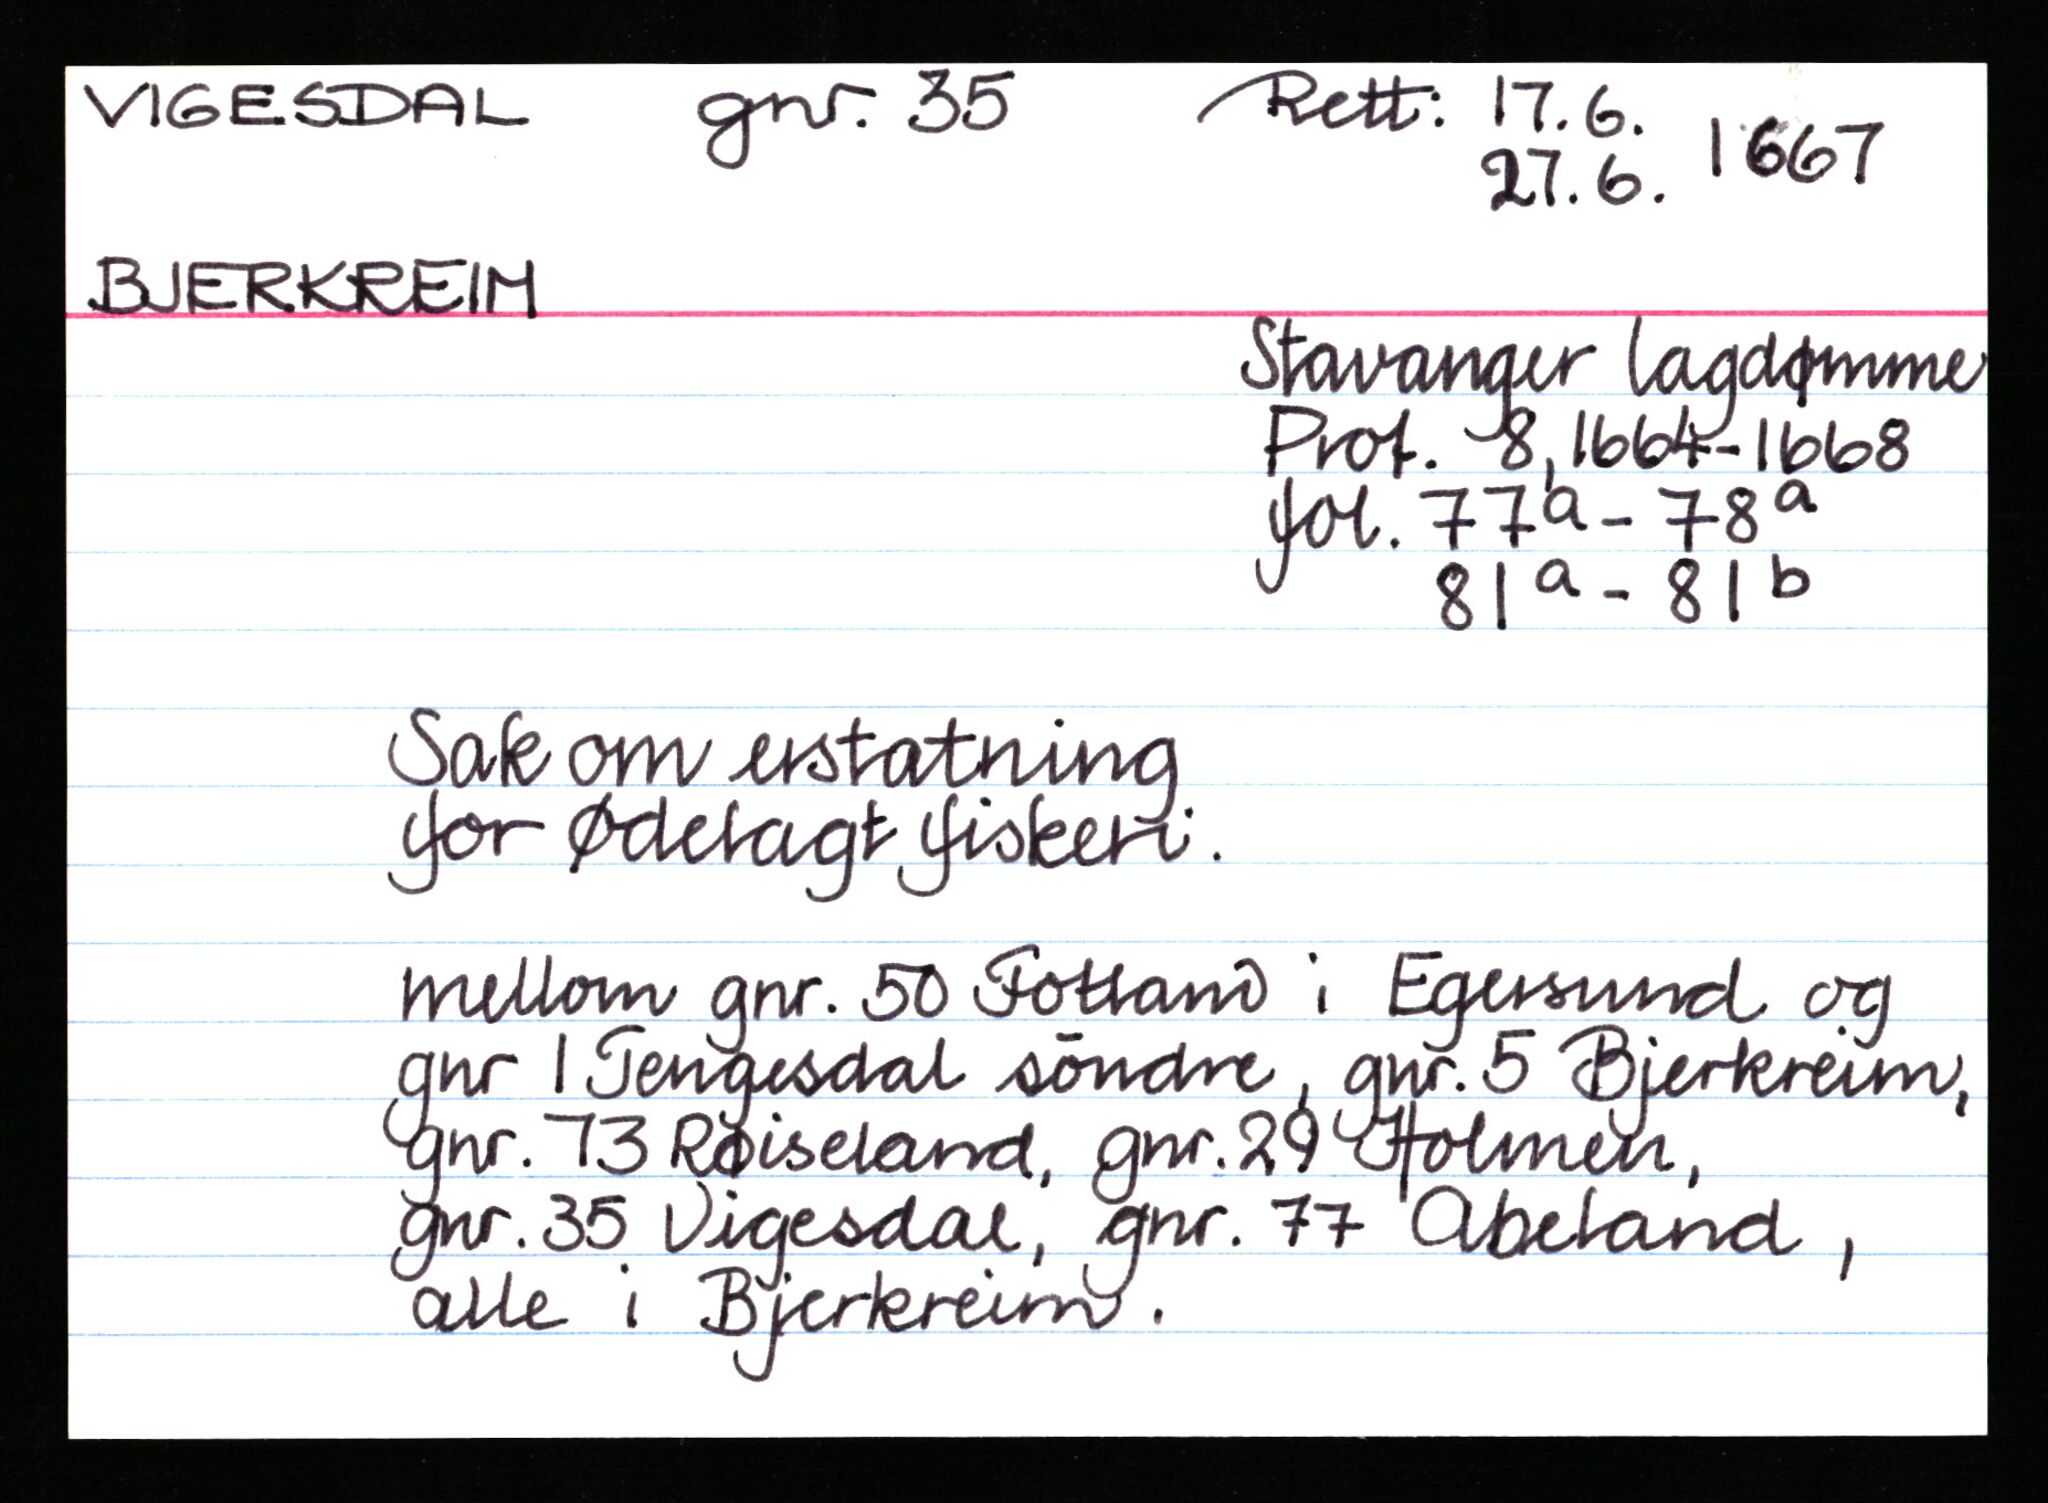 VIGESDAL gnr. 35 Rett: 17.6.
27.6. 1667
BJERKREIM
Stavanger lagdømme
Prot. 8, 1664-1668
fol. 77a - 78a
81a - 81b
Sak om erstatning
for ødelagt fiskeri.
mellom gnr. 50 Fotland i Egersund og
gnr 1 Tengesdal söndre, gnr. 5 Bjerkreim,
gnr. 73 Røiseland, gnr. 29 Holmen,
gnr. 35 Vigesdal, gnr. 77 Abeland,
alle i Bjerkreim.